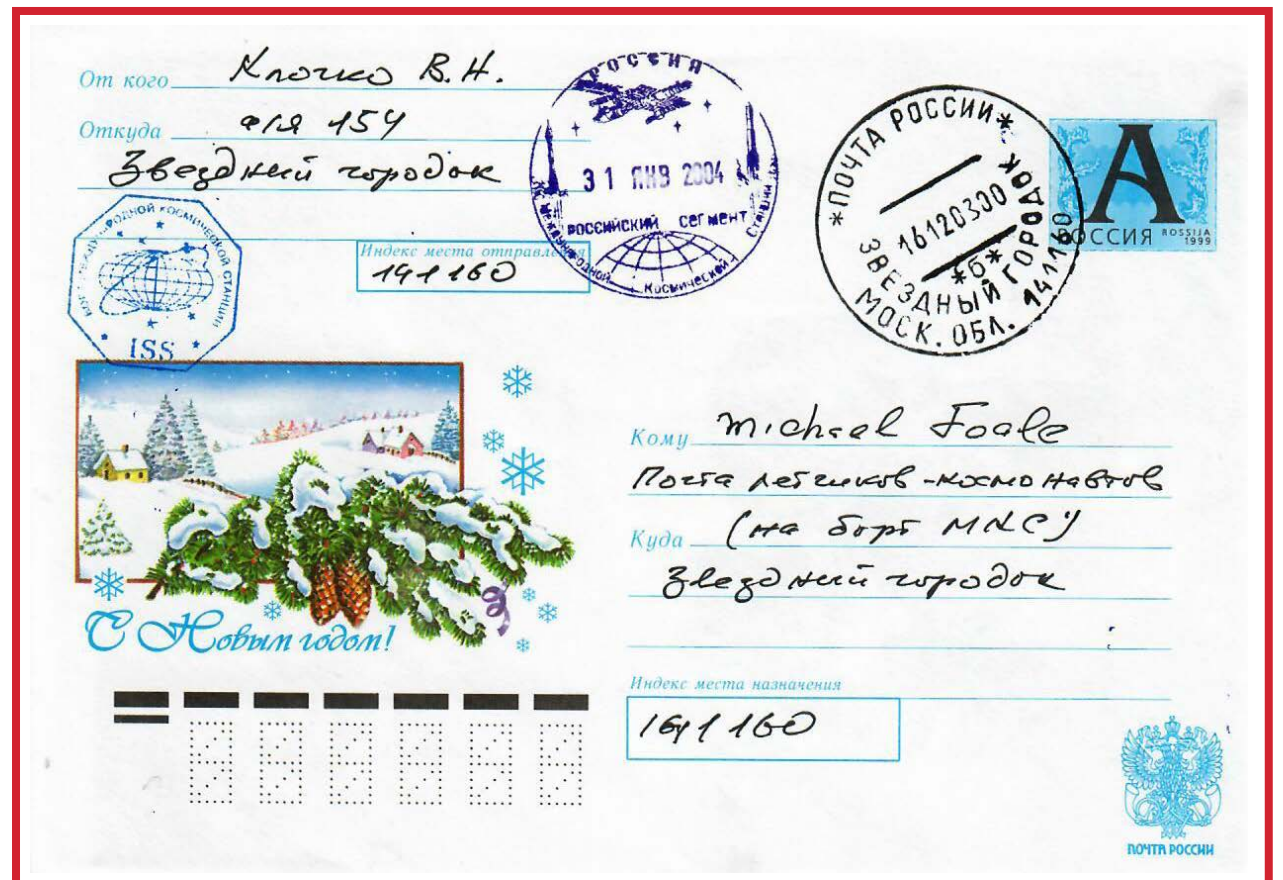 От кого Клочко В.Н.
Откуда а/я 154
Звездный городок
Индекс места отправления
141160
РОССИЯ
31 ЯНВ 2004
РОССИЙСКИЙ СЕГМЕНТ
Международной Космической Станции
*ПОЧТА РОССИИ*
1612030300
*б*
ЗВЕЗДНЫЙ ГОРОДОК
МОСК. ОБЛ. 141160
А
РОССИЯ ROSSIJA
1999
МЕЖДУНАРОДНОЙ КОСМИЧЕСКОЙ СТАНЦИИ
ISS
С Новым годом!
Кому Michael Foale
Почта летчиков-космонавтов
Куда (на борт МКС)
Звездный городок
Индекс места назначения
141160
ПОЧТА РОССИИ